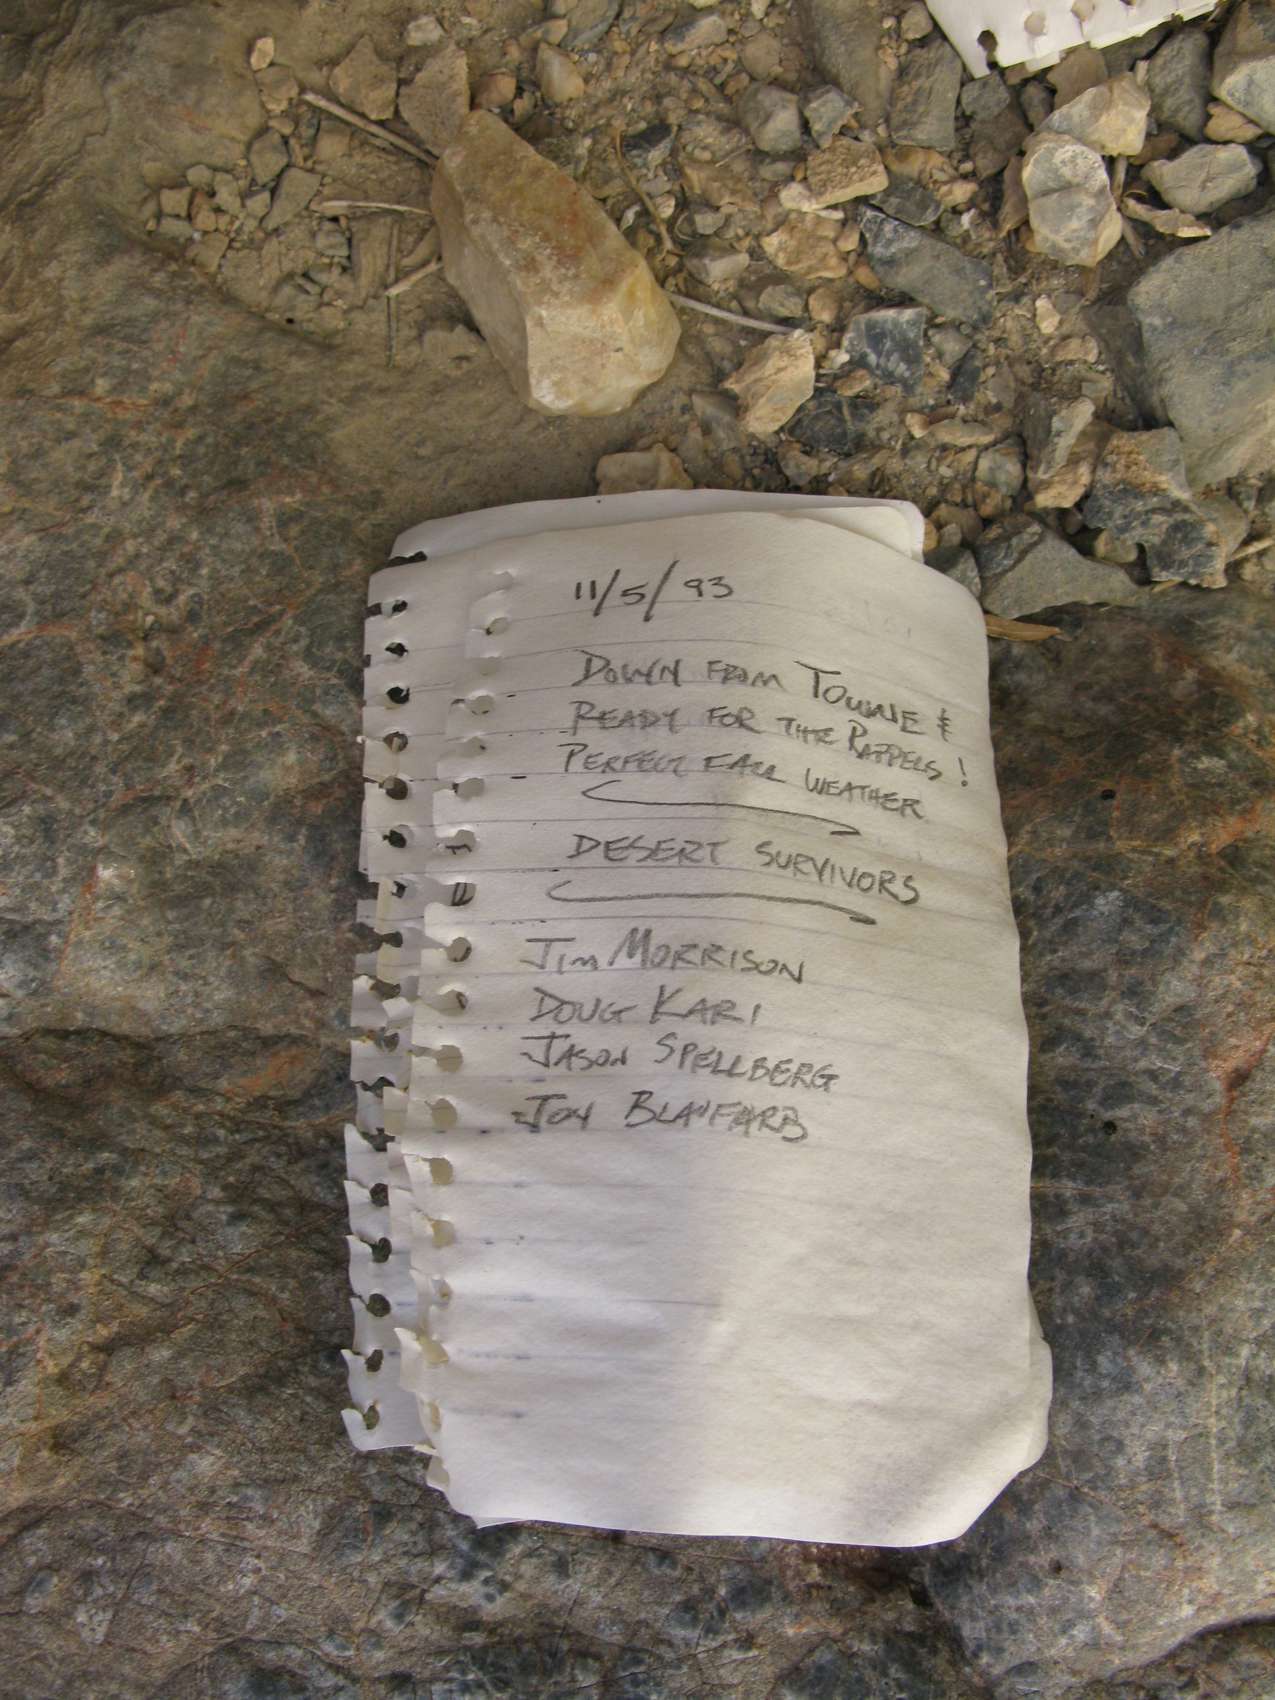 11/5/93
DOWN FROM TOWNE &
READY FOR THE RAPPELS!
PERFECT FALL WEATHER
DESERT SURVIVORS
JIM MORRISON
DOUG KARI
JASON SPELLBERG
JOY BLANFARB